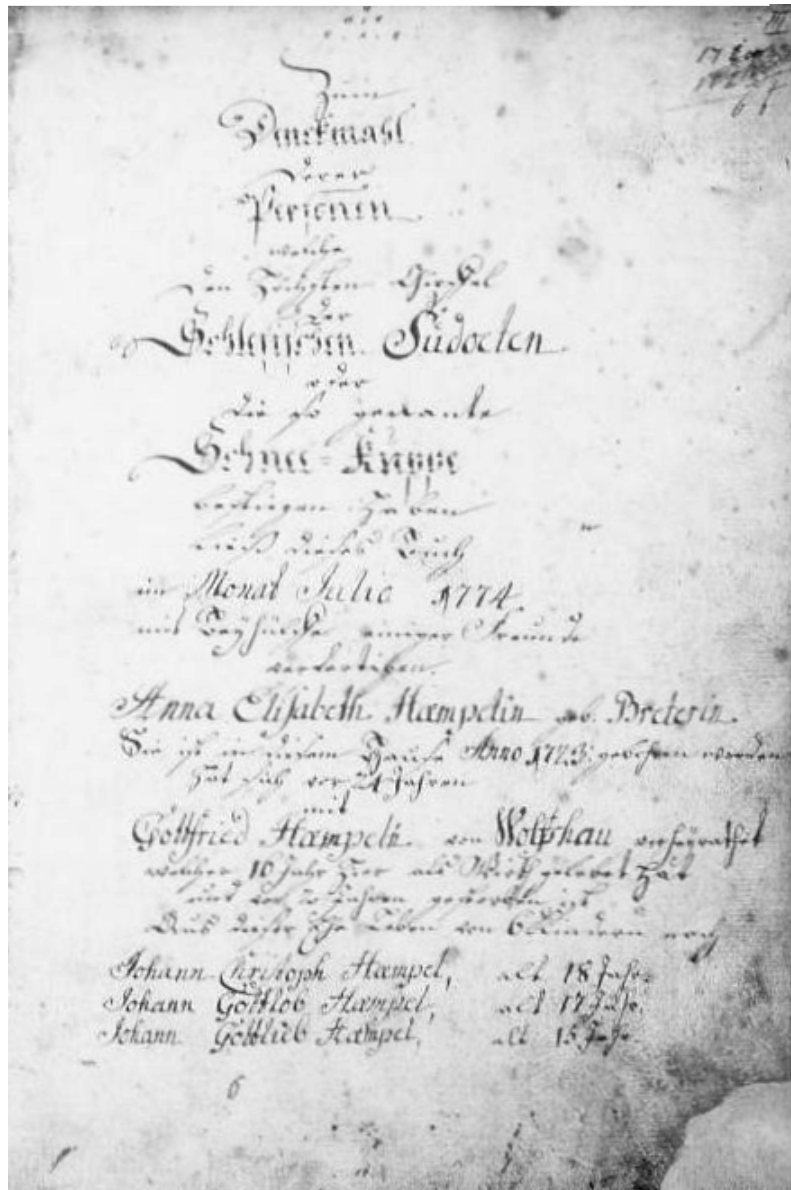 III
Zum
Denckmahl
derer
Personen
welche
den Höchsten Gipffel
der
Schlesischen Sudoeten
oder
die so genante
Schnee-Kuppe
bestiegen haben
ließ dieses Buch
im Monat Julio 1774
mit Beyhülffe einiger Freunde
verfertigen.
Anna Elisabeth Hæmpelin geb. Breterin.
Sie ist in diesem Hause Anno 1723. gebohren worden
hat sich vor 24 Jahren
mit
Gottfried Hæmpeln von Wolfshau verheyrathet
welcher 10 Jahr hier als Wirth gelebet hat
und vor Jahren gestorben ist
Aus dieser Ehe Leben von 6 Kindern noch
Johann Christoph Hæmpel, alt 18 Jahr.
Johann Gottlob Hæmpel, alt 17 Jahr.
Johann Gottlieb Hæmpel, alt 15 Jahr.
6